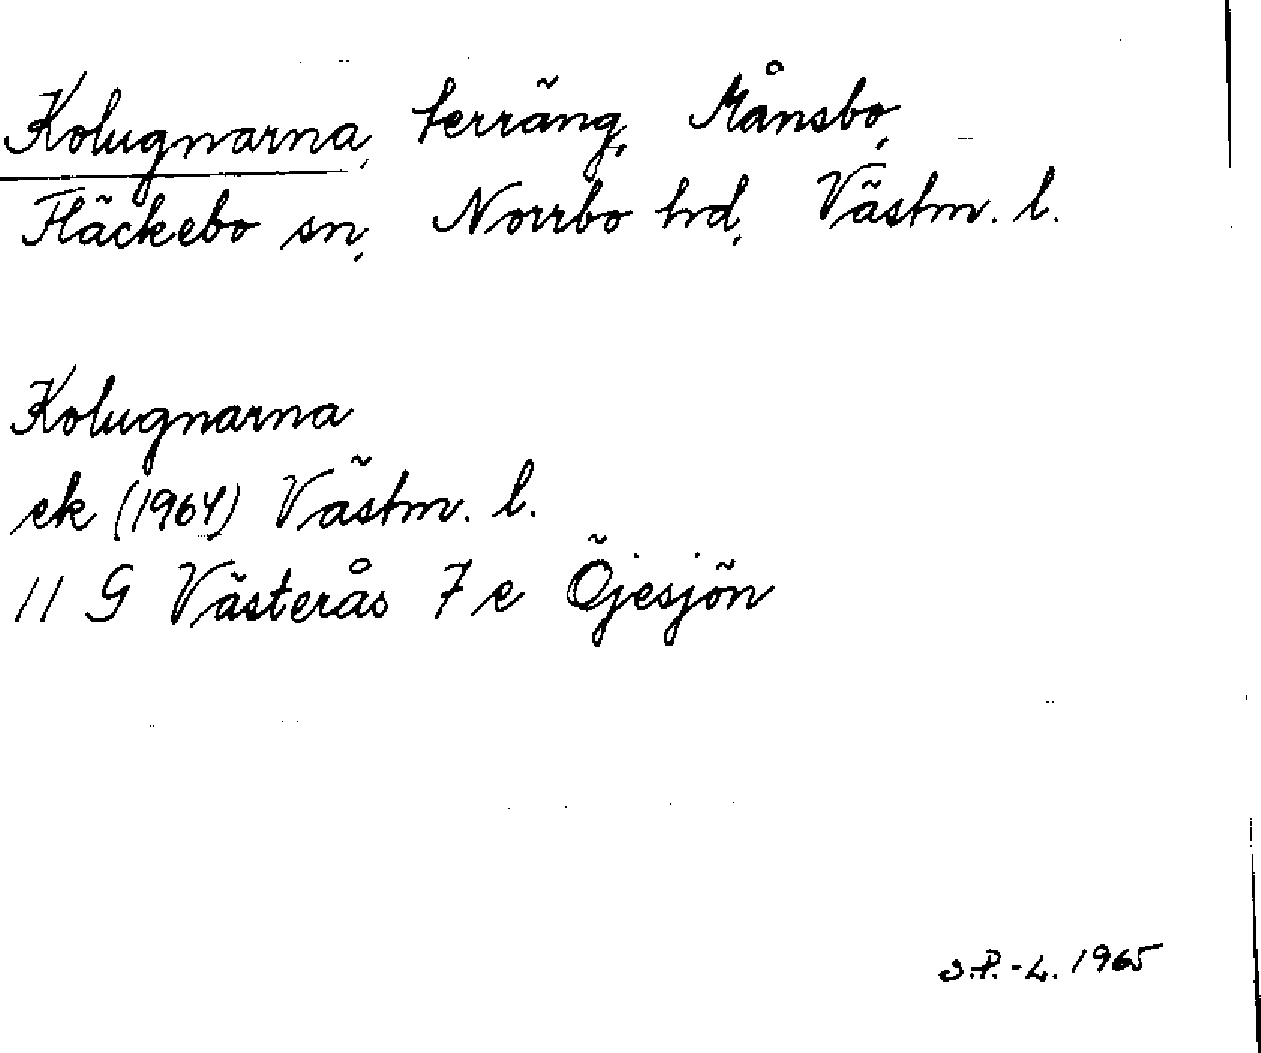 Kolugnarna, terräng, Månsbo,
Fläckebo sn, Norrbo hd, Västm. l.
Kolugnarna
ek (1964) Västm. l.
11 G Västerås 7 e Öjesjön
S.P.-L. 1965